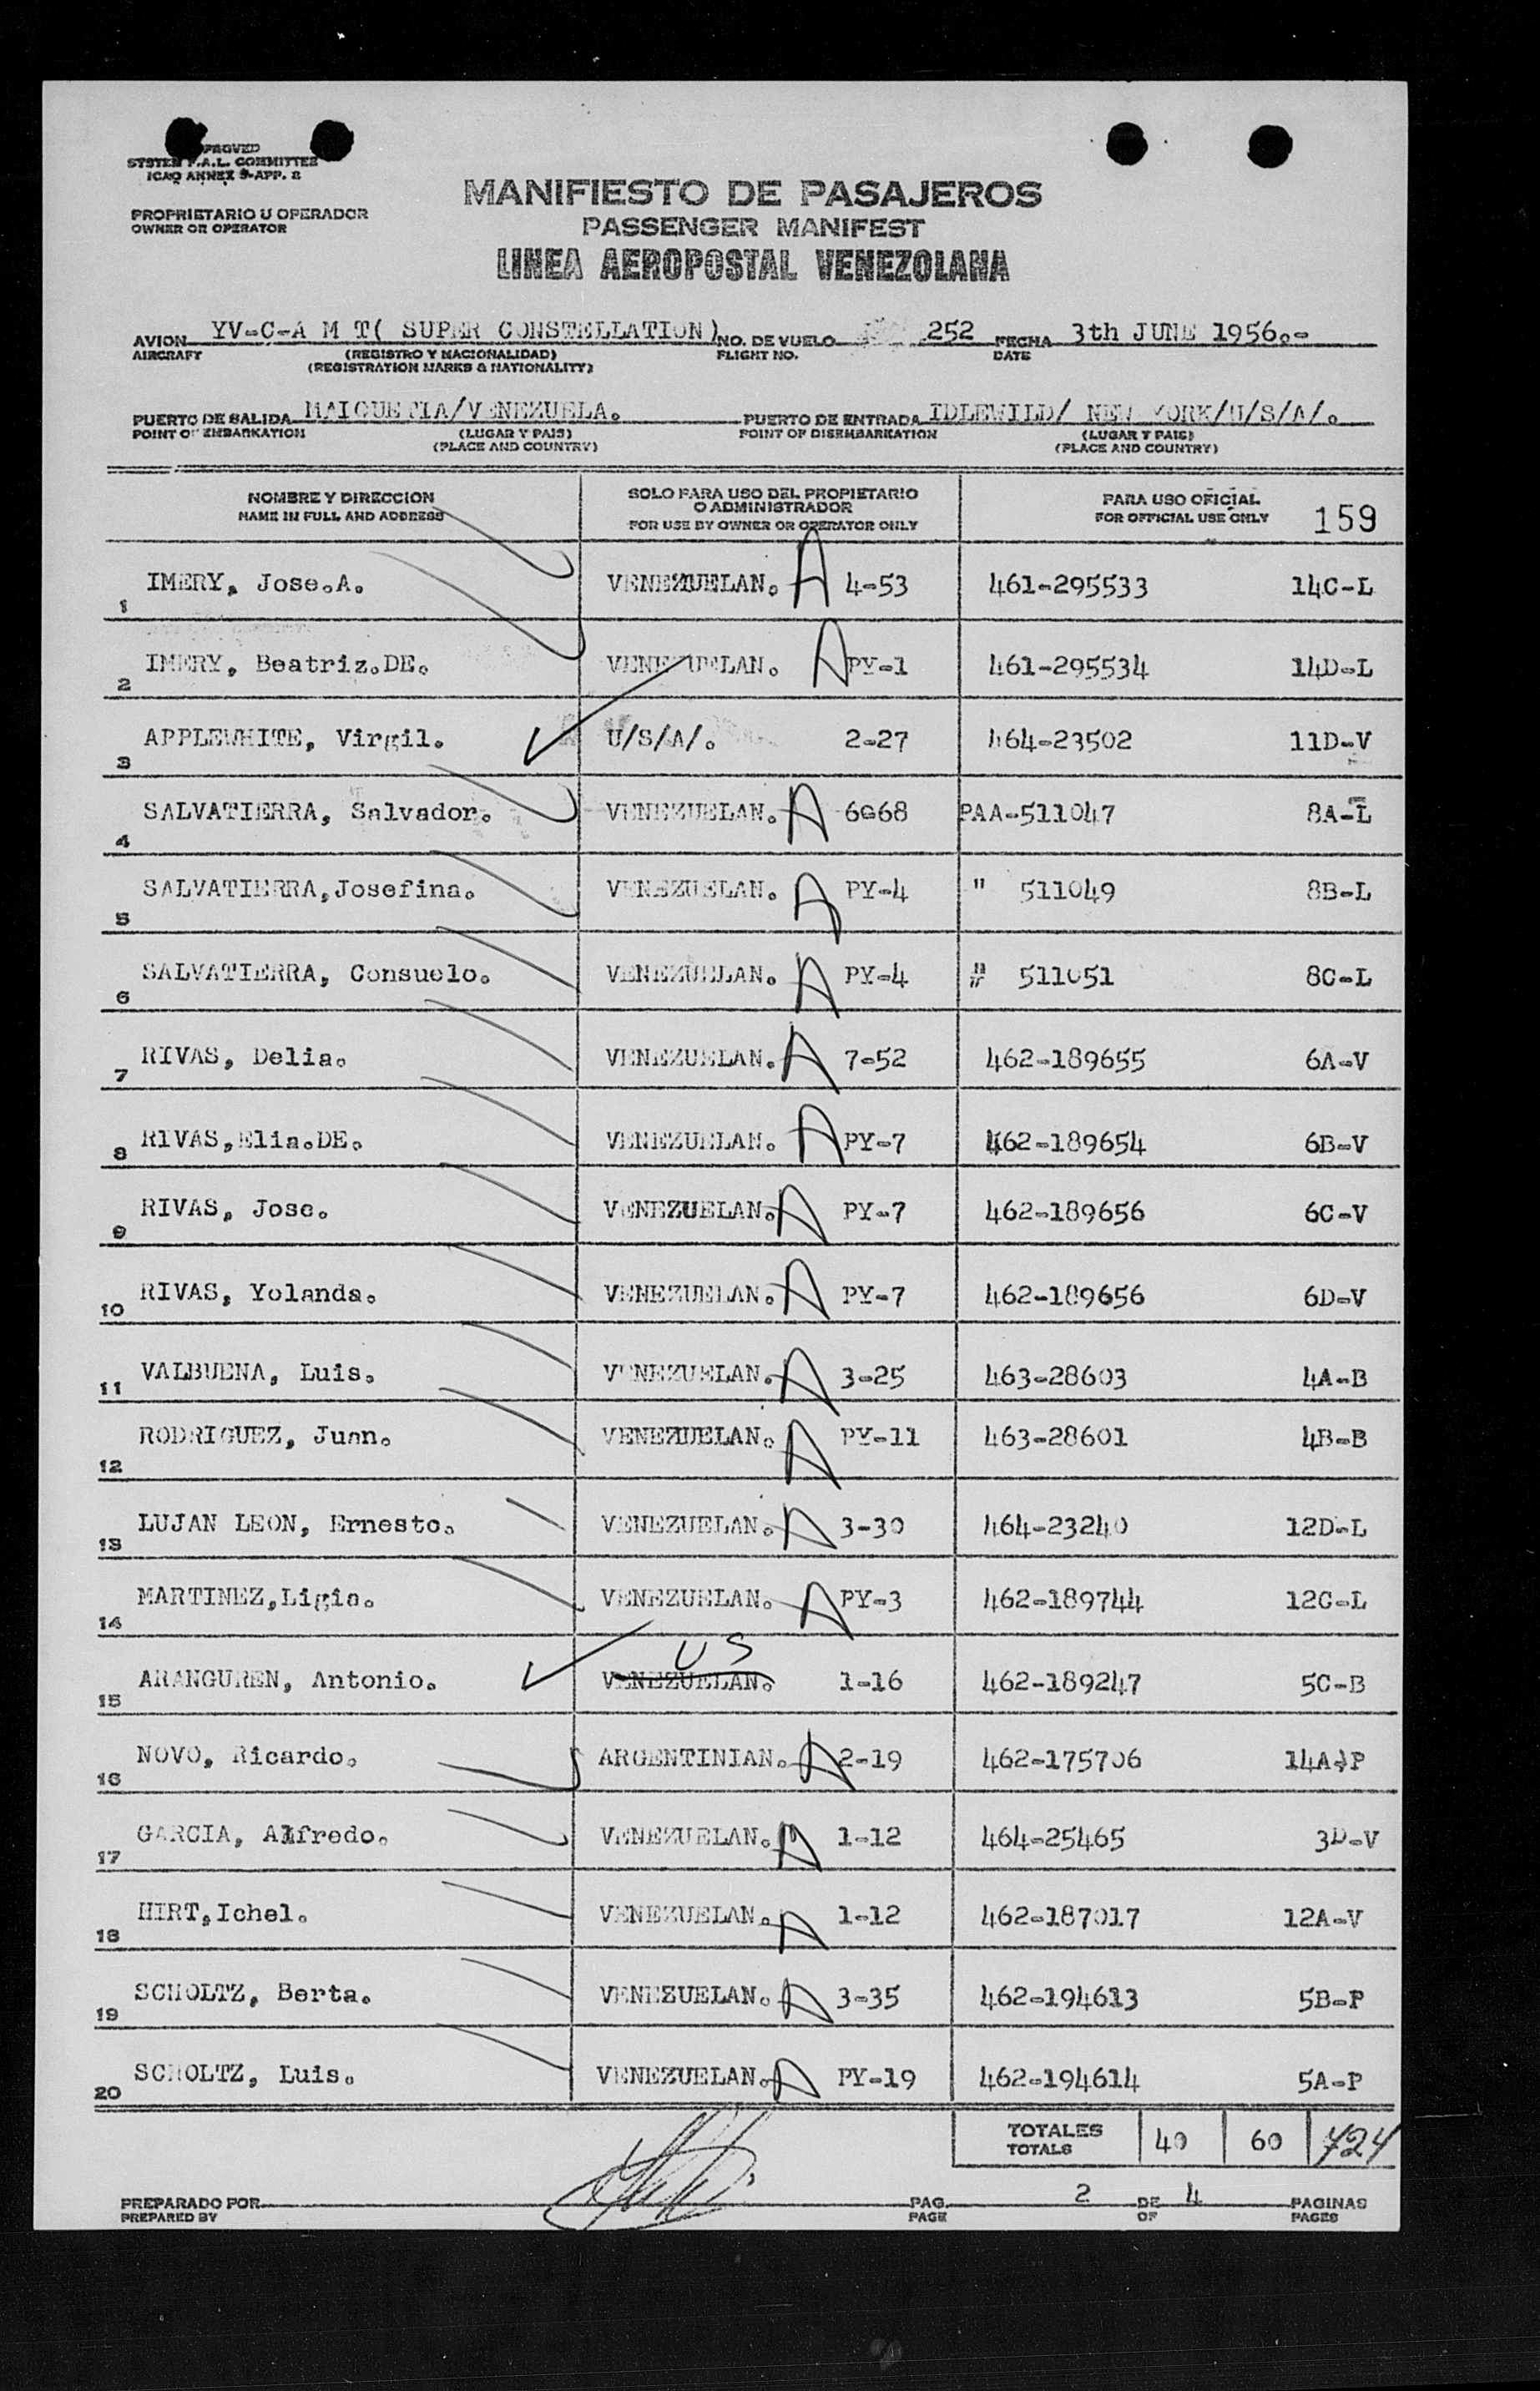 APPROVED
SYSTEM F.A.L. COMMITTEE
ICAO ANNEX 9-APP. 2
PROPRIETARIO U OPERADOR
OWNER OR OPERATOR
MANIFIESTO DE PASAJEROS
PASSENGER MANIFEST
LINEA AEROPOSTAL VENEZOLANA
AVION YV-C-A M T( SUPER CONSTELLATION) NO. DE VUELO 252 FECHA 3th JUNE 1956.-
AIRCRAFT (REGISTRO Y NACIONALIDAD) FLIGHT NO. DATE
(REGISTRATION MARKS & NATIONALITY)
PUERTO DE SALIDA MAIQUETIA/VENEZUELA. PUERTO DE ENTRADA IDLEWILD/ NEW YORK/U/S/A/.
POINT OF EMBARKATION (LUGAR Y PAIS) POINT OF DISEMBARKATION (LUGAR Y PAIS)
(PLACE AND COUNTRY) (PLACE AND COUNTRY)
NOMBRE Y DIRECCION SOLO PARA USO DEL PROPIETARIO O ADMINISTRADOR PARA USO OFICIAL
NAME IN FULL AND ADDRESS FOR USE BY OWNER OR OPERATOR ONLY FOR OFFICIAL USE ONLY 159
1 IMERY, Jose.A. VENEZUELAN. A 4-53 461-295533 14C-L
2 IMERY, Beatriz.DE. VENEZUELAN. A PY-1 461-295534 14D-L
3 APPLEWHITE, Virgil. U/S/A/. 2-27 464-23502 11D-V
4 SALVATIERRA, Salvador. VENEZUELAN. A 6@68 PAA-511047 8A-L
5 SALVATIERRA,Josefina. VENEZUELAN. A PY-4 " 511049 8B-L
6 SALVATIERRA, Consuelo. VENEZUELAN. A PY-4 " 511051 8C-L
7 RIVAS, Delia. VENEZUELAN. A 7-52 462-189655 6A-V
8 RIVAS,Elia.DE. VENEZUELAN. A PY-7 462-189654 6B-V
9 RIVAS, Jose. VENEZUELAN. A PY-7 462-189656 6C-V
10 RIVAS, Yolanda. VENEZUELAN. A PY-7 462-189656 6D-V
11 VALBUENA, Luis. VENEZUELAN. A 3-25 463-28603 4A-B
12 RODRIGUEZ, Juan. VENEZUELAN. A PY-11 463-28601 4B-B
13 LUJAN LEON, Ernesto. VENEZUELAN. A 3-30 464-23240 12D-L
14 MARTINEZ,Ligia. VENEZUELAN. A PY-3 462-189744 12C-L
US
15 ARANGUREN, Antonio. VENEZUELAN. 1-16 462-189247 5C-B
16 NOVO, Ricardo. ARGENTINIAN. A 2-19 462-175706 14A-P
17 GARCIA, Alfredo. VENEZUELAN. A 1-12 464-25465 3D-V
18 HIRT,Ichel. VENEZUELAN. A 1-12 462-187017 12A-V
19 SCHOLTZ, Berta. VENEZUELAN. A 3-35 462-194613 5B-P
20 SCHOLTZ, Luis. VENEZUELAN. A PY-19 462-194614 5A-P
TOTALES 40 60 724
TOTALS
PREPARADO POR PAG. 2 DE 4 PAGINAS
PREPARED BY PAGE OF PAGES